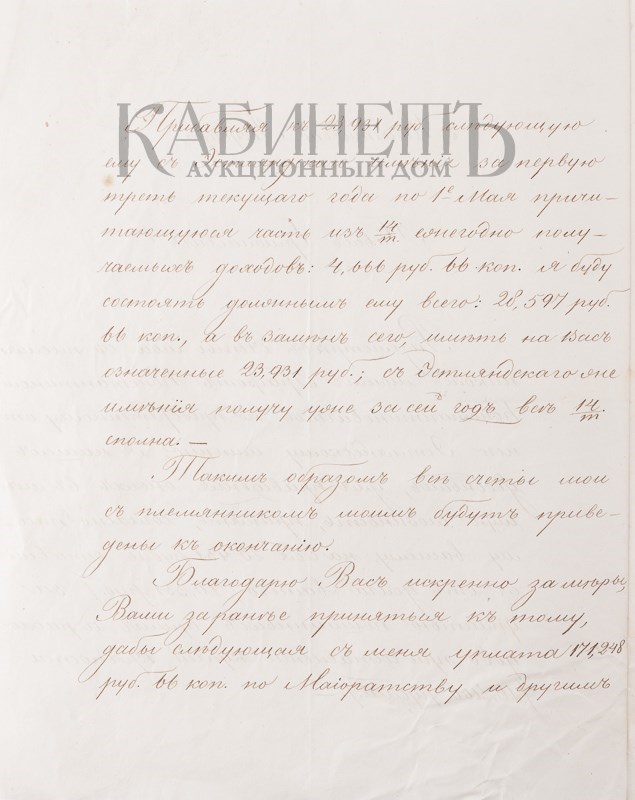 КАБИНЕТЪ
АУКЦИОННЫЙ ДОМ
Прибавляя къ 23,931 руб. слѣдующую
ему съ Эстляндскаго имѣнія за первую
треть текущаго года по 1е Мая причи-
тающуюся часть изъ 14/m. ежегодно полу-
чаемыхъ доходовъ: 4,666 руб. 66 коп. я буду
состоять должнымъ ему всего: 28,597 руб.
66 коп., а въ замѣнъ сего, имѣть на Васъ
означенные 23,931 руб.; съ Эстляндскаго же
имѣнія получу уже за сей годъ всѣ 14/m.
сполна. —
Такимъ образомъ всѣ счеты мои
съ племянникомъ моимъ будутъ приве-
дены къ окончанію.
Благодарю Васъ искренно за мѣры,
Вами заранѣе принятыя къ тому,
дабы слѣдующая съ меня уплата 171,248
руб. 66 коп. по Маіоратству и другимъ